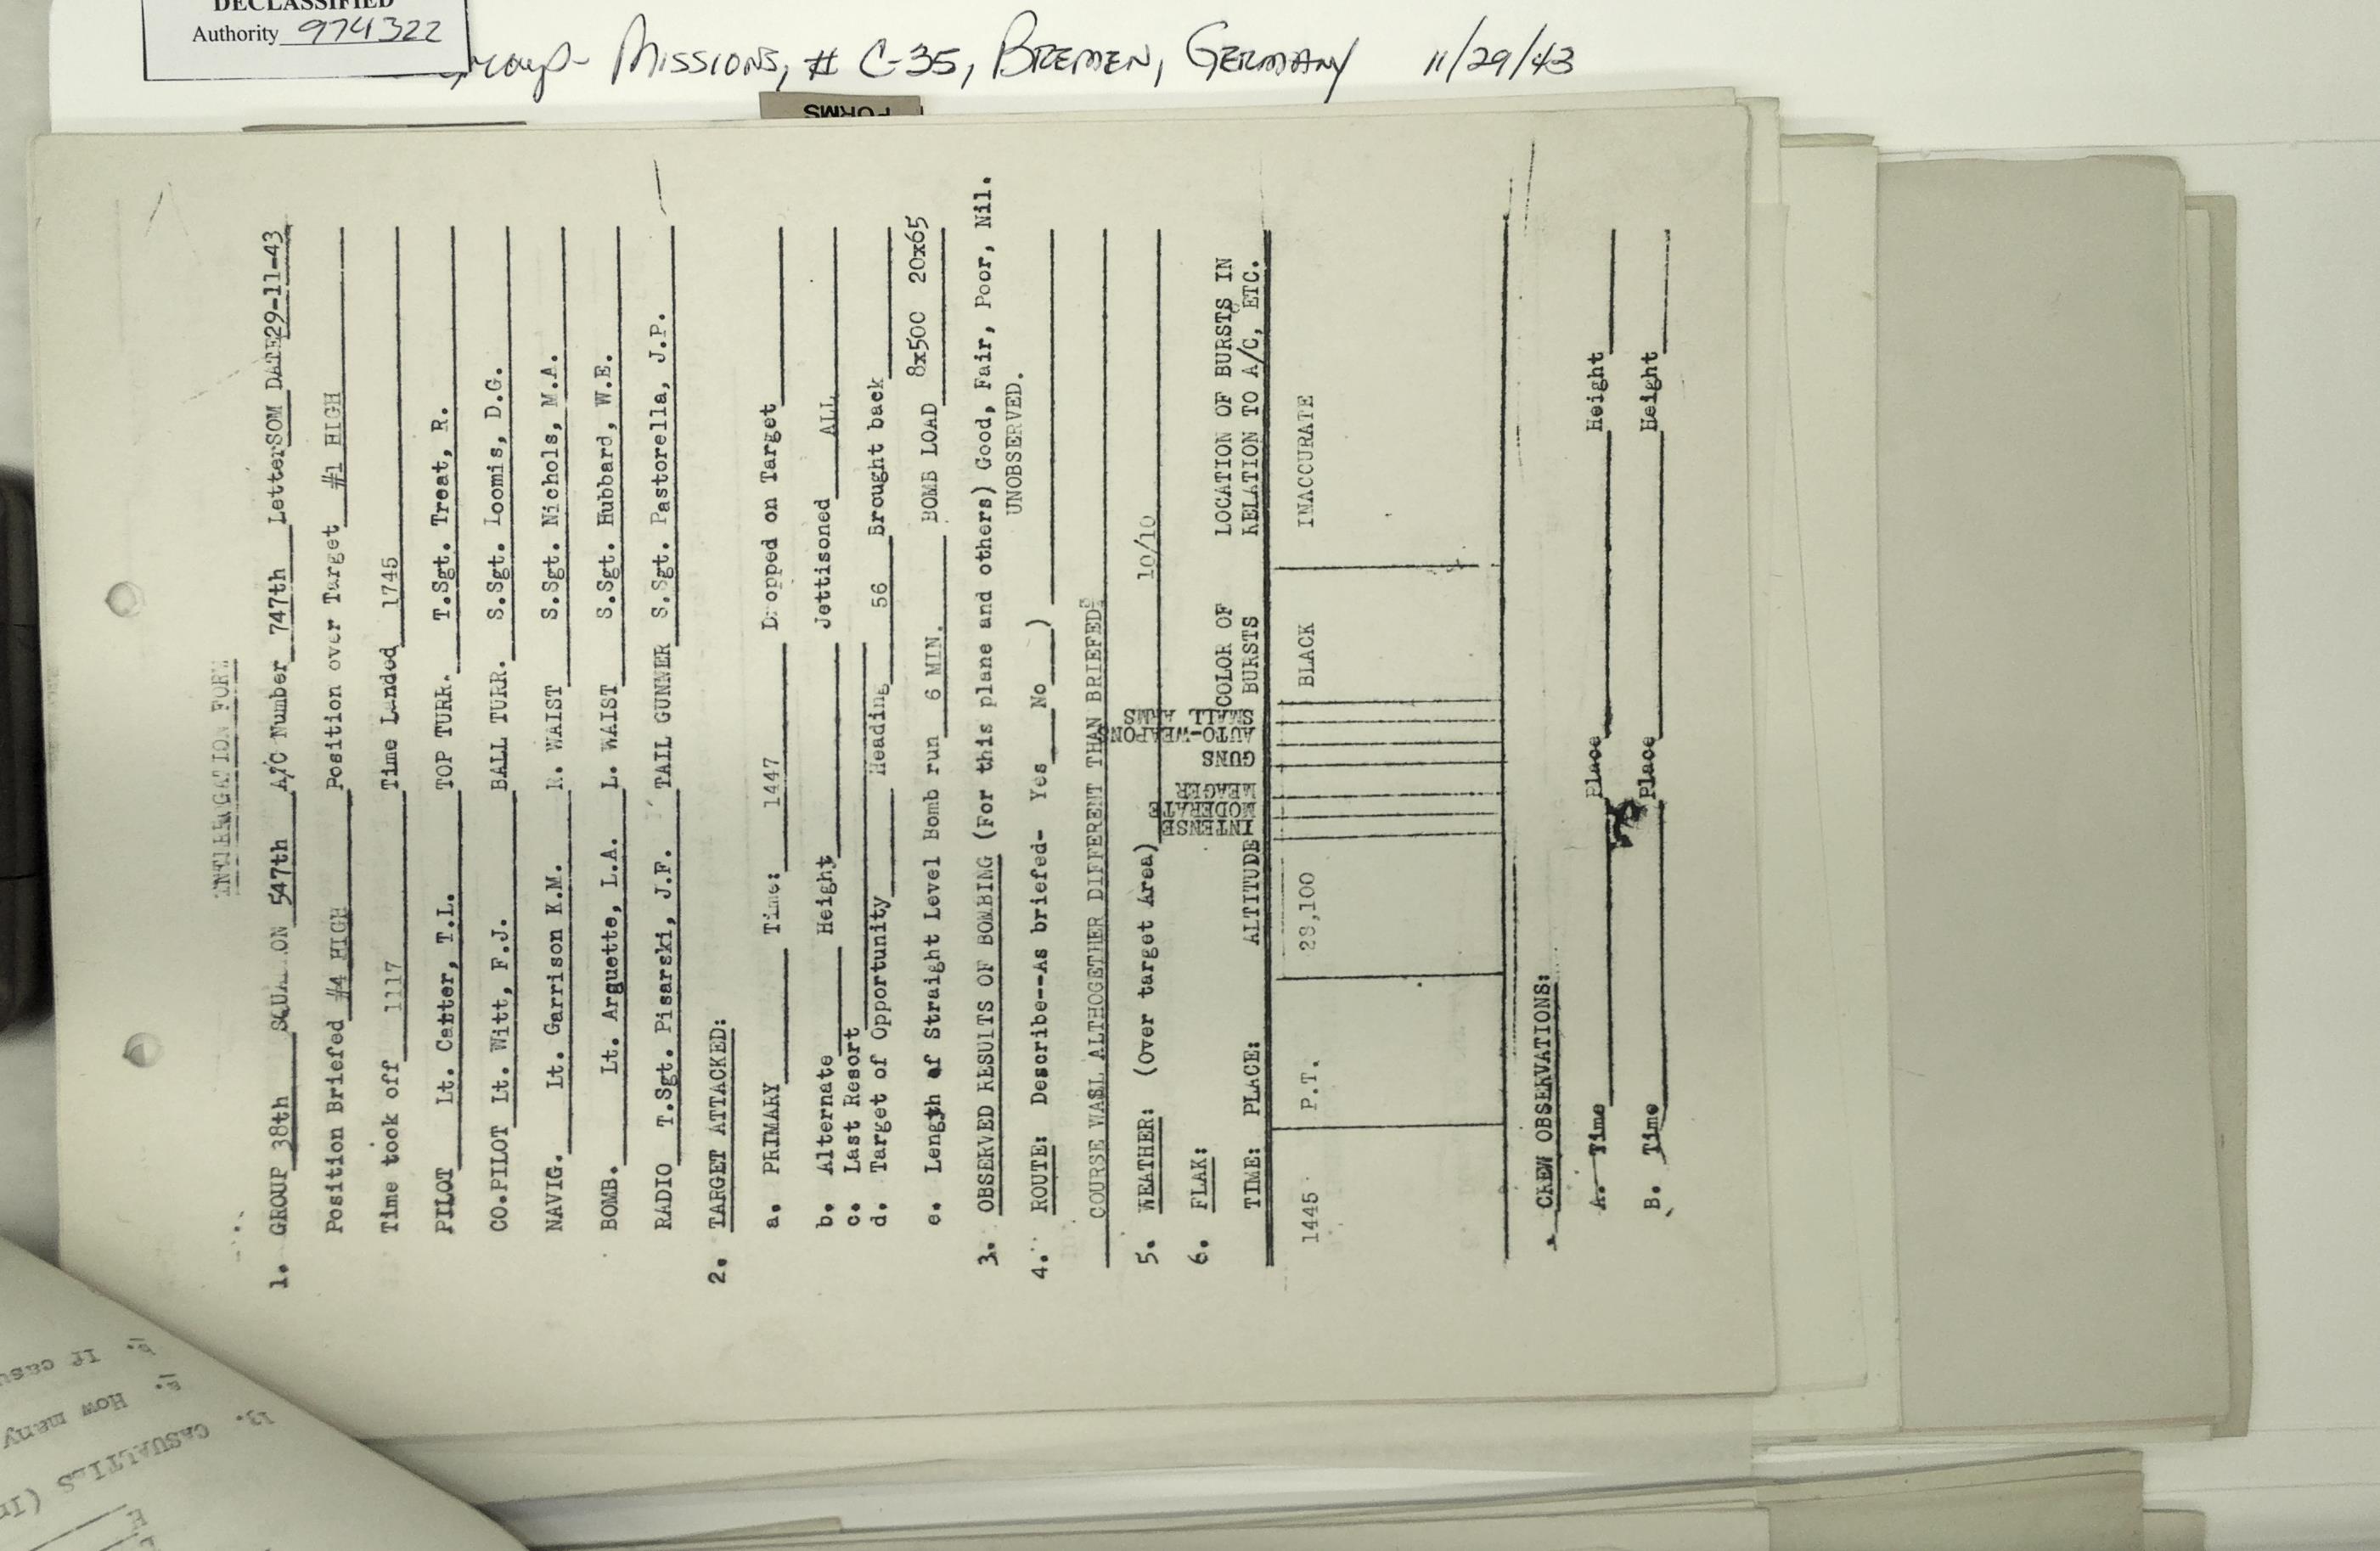 DECLASSIFIED
Authority 974322
Group- MISSIONS, # C-35, BREMEN, GERMANY 11/29/43
FORMS
INTERROGATION FORM
1. GROUP 38th SQUADRON 547th A/C Number 747th Letter SOM DATE 29-11-43
Position Briefed #4 HIGH Position over Target #1 HIGH
Time took off 1117 Time Landed 1745
PILOT Lt. Catter, T.L. TOP TURR. T.Sgt. Treat, R.
CO.PILOT Lt. Witt, F.J. BALL TURR. S.Sgt. Loomis, D.G.
NAVIG. Lt. Garrison K.M. R. WAIST S.Sgt. Nichols, M.A.
BOMB. Lt. Arguette, L.A. L. WAIST S.Sgt. Hubbard, W.E.
RADIO T.Sgt. Pisarski, J.F. TAIL GUNNER S.Sgt. Pastorella, J.P.
2. TARGET ATTACKED:
a. PRIMARY Time: 1447 Dropped on Target
b. Alternate Height Jettisoned ALL
c. Last Resort
d. Target of Opportunity Heading 56 Brought back
e. Length of Straight Level Bomb run 6 MIN. BOMB LOAD 8x500 20x65
3. OBSERVED RESULTS OF BOMBING (For this plane and others) Good, Fair, Poor, Nil.
UNOBSERVED.
4. ROUTE: Describe--As briefed- Yes No )
COURSE WASL ALTHOGETHER DIFFERENT THAN BRIEFED
5. WEATHER: (Over target Area) 10/10
6. FLAK:
TIME: PLACE: ALTITUDE INTENSE MODERATE MEAGER GUNS AUTO-WEAPONS SMALL ARMS COLOR OF BURSTS LOCATION OF BURSTS IN RELATION TO A/C, ETC.
1445 P.T. 28,100 BLACK INACCURATE
CREW OBSERVATIONS:
A. Time Place Height
B. Time Place Height
13. CASUALTIES (In
a. How many
b. If casu